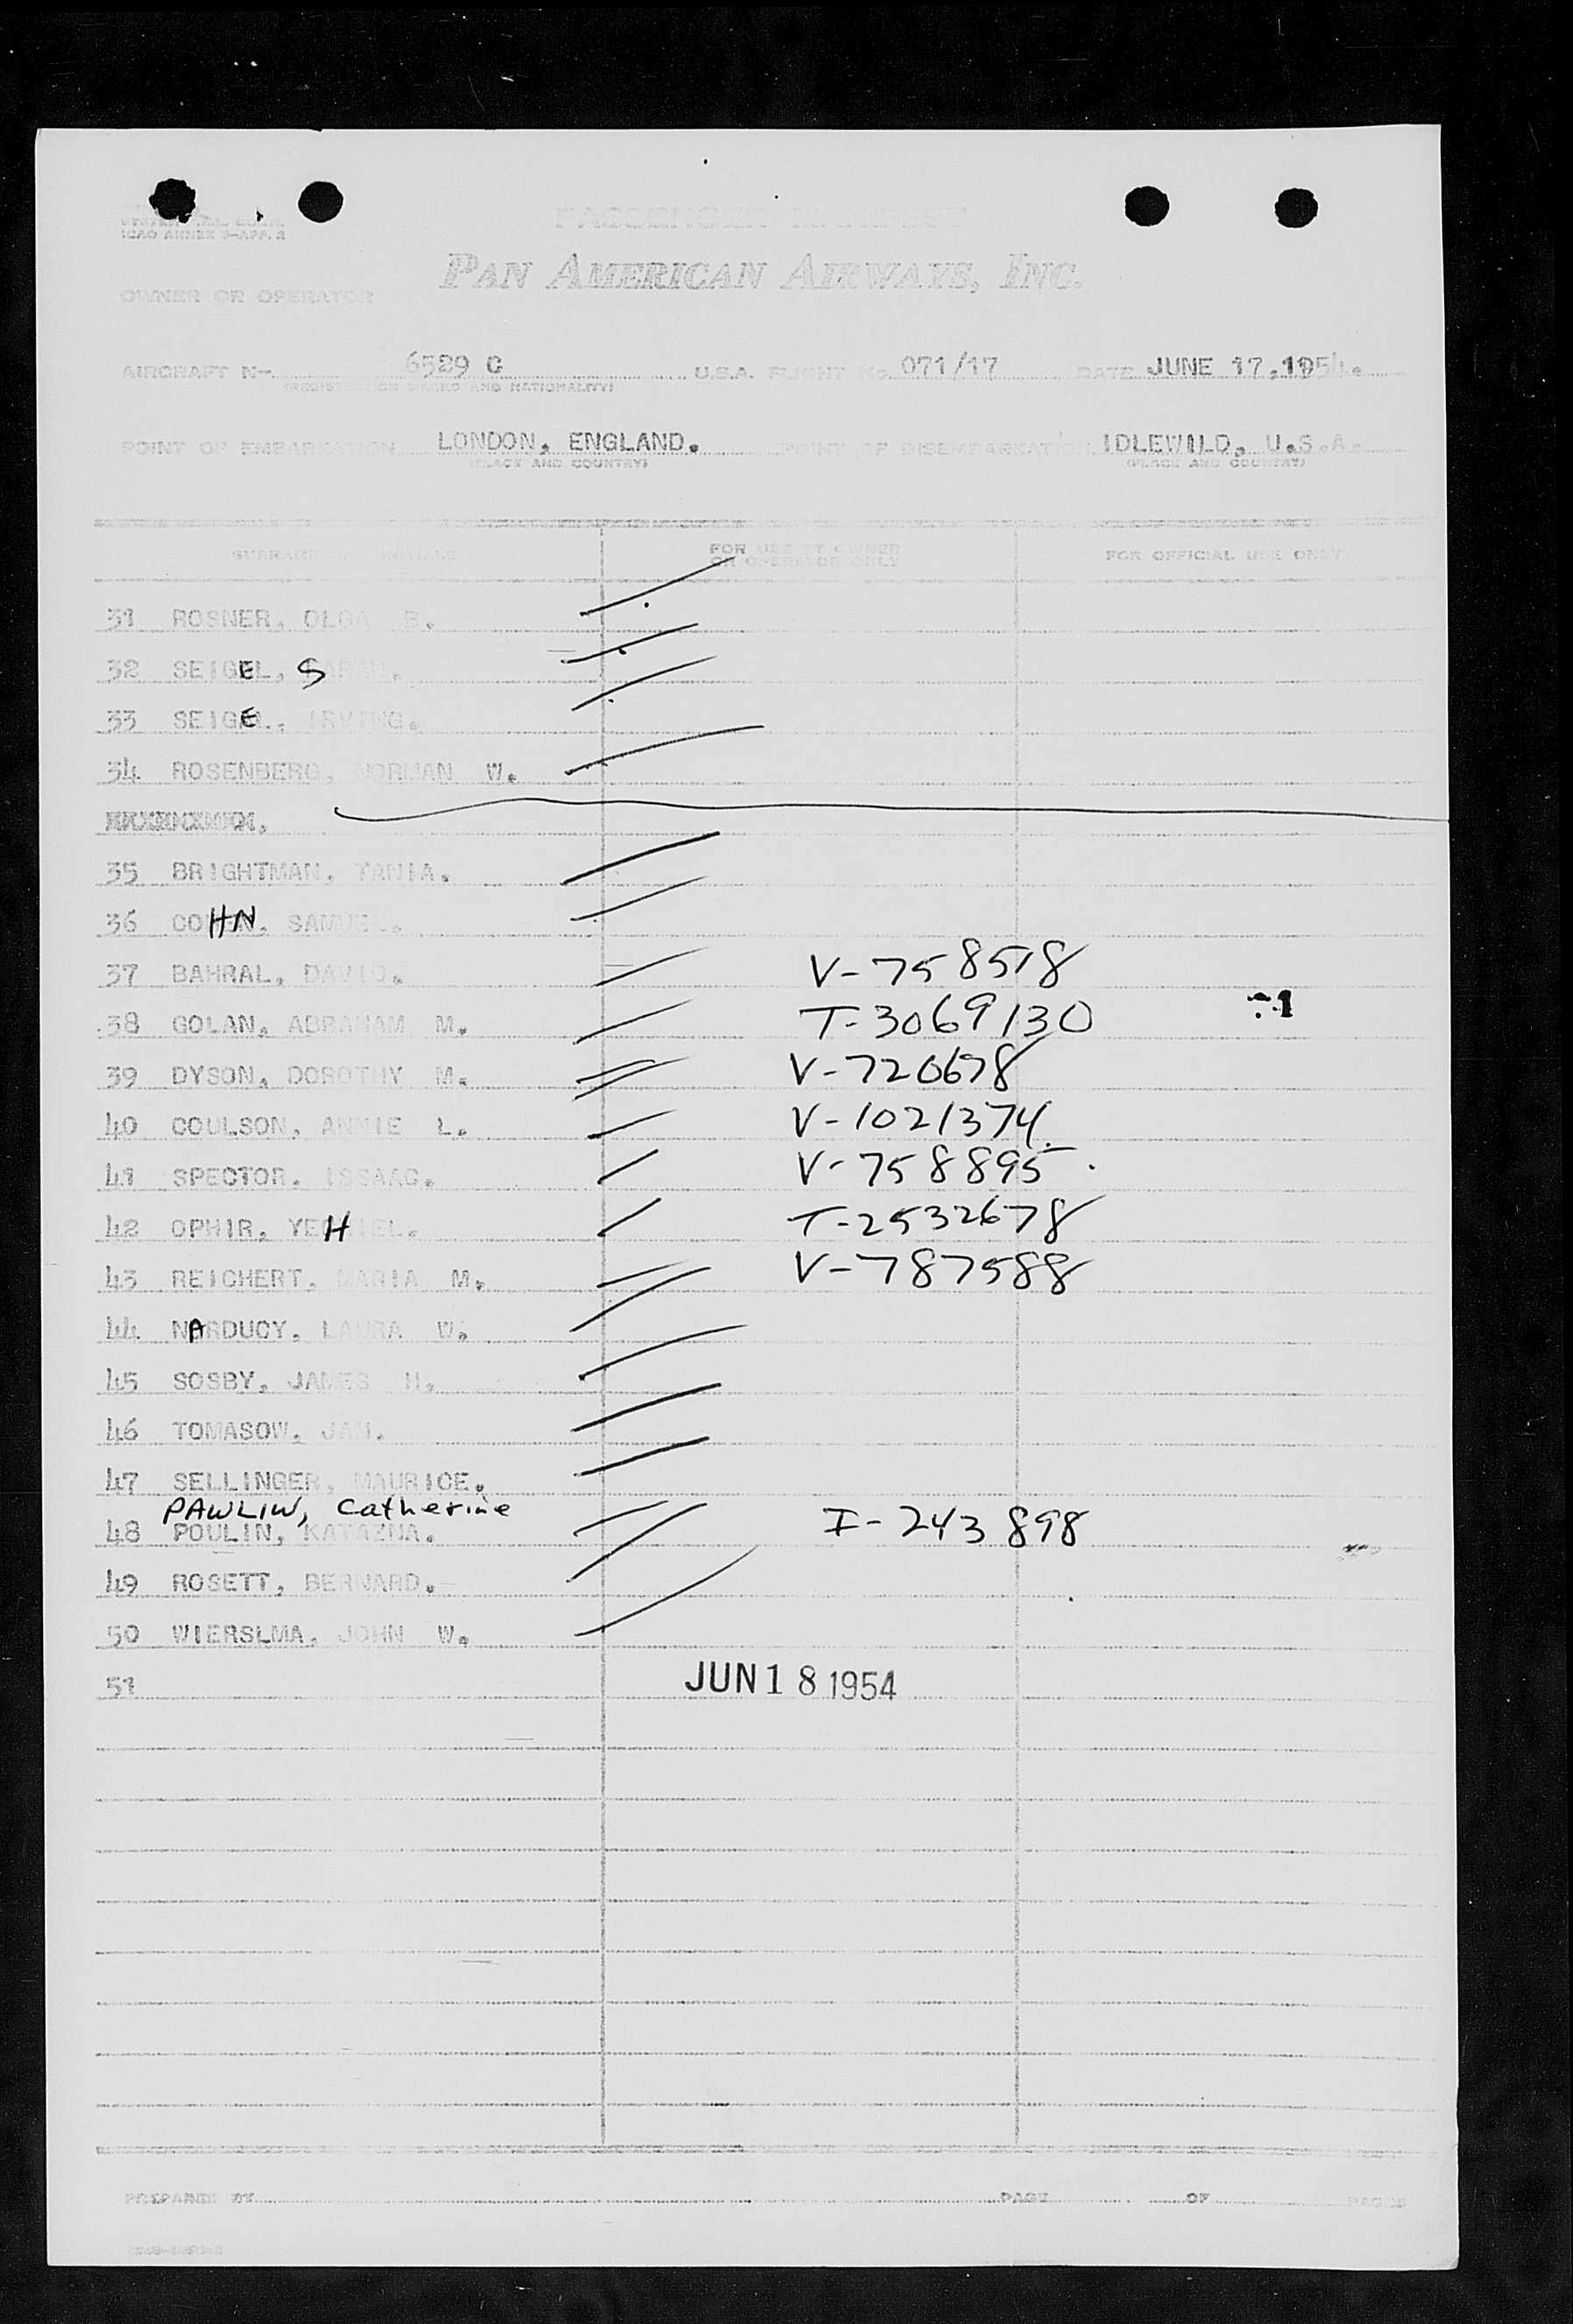 PASSENGER MANIFEST
ICAO ANNEX 9-APP. 2
PAN AMERICAN AIRWAYS, INC.
OWNER OR OPERATOR
AIRCRAFT N- 6529 C U.S.A. FLIGHT No. 071/17 DATE JUNE 17, 1954.
(REGISTRATION MARKS AND NATIONALITY)
POINT OF EMBARKATION LONDON, ENGLAND. POINT OF DISEMBARKATION IDLEWILD, U.S.A.
(PLACE AND COUNTRY) (PLACE AND COUNTRY)
SURNAME AND INITIALS FOR USE BY OWNER OR OPERATOR ONLY FOR OFFICIAL USE ONLY
31 ROSNER, OLGA B.
32 SEIGEL, SARAH.
33 SEIGEL, IRVING.
34 ROSENBERG, NORMAN W.
35 BRIGHTMAN, TANIA.
36 COHN, SAMUEL.
37 BAHRAL, DAVID. V-758518
38 GOLAN, ABRAHAM M. T-3069130
39 DYSON, DOROTHY M. V-720678
40 COULSON, ANNIE L. V-1021374
41 SPECTOR, ISSAAC. V-758895
42 OPHIR, YEHIEL. T-2532678
43 REICHERT, MARIA M. V-787588
44 NARDUCY, LAURA W.
45 SOSBY, JAMES H.
46 TOMASOW, JAN.
47 SELLINGER, MAURICE.
PAWLIW, Catherine
48 POULIN, KATAZNA. I-243898
49 ROSETT, BERNARD.
50 WIERSLMA, JOHN W.
51 JUN 18 1954
PREPARED BY PAGE OF PAGES